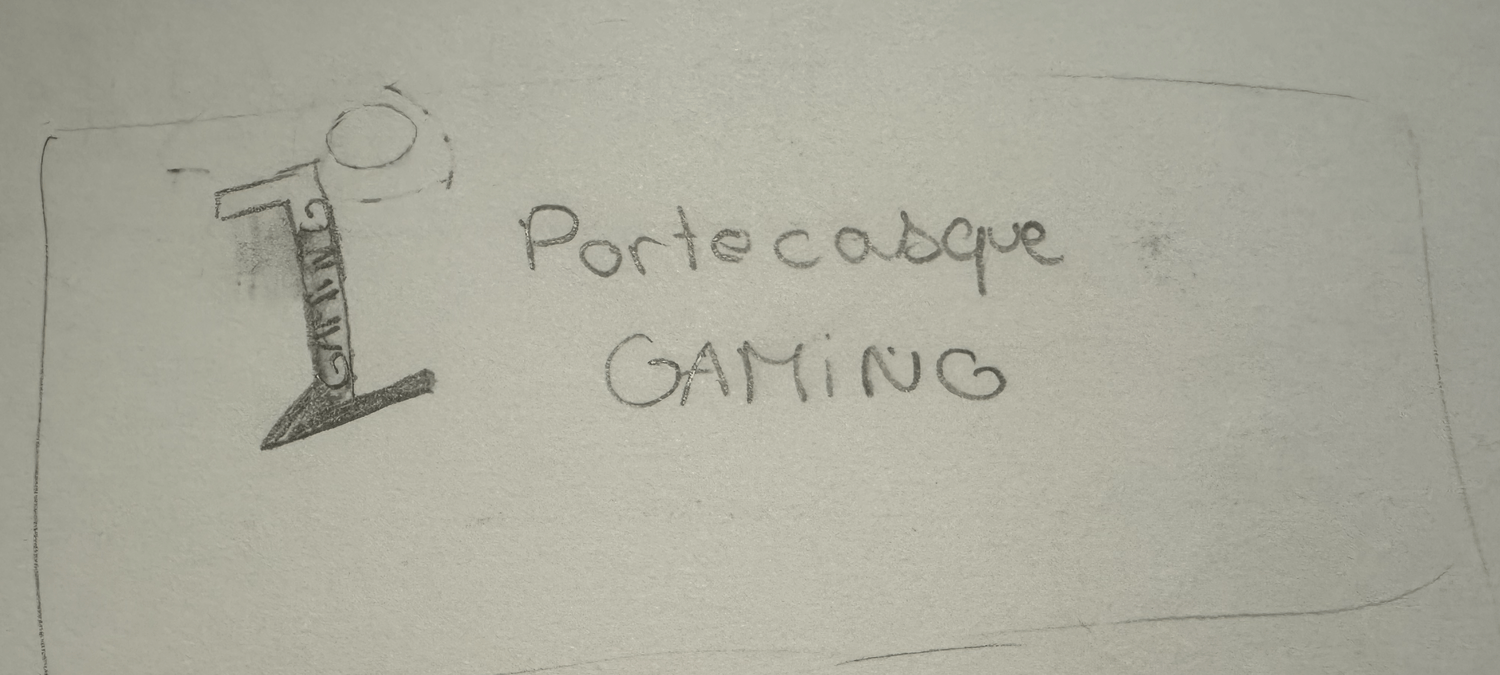 GAMING
Portecasque
GAMiNG